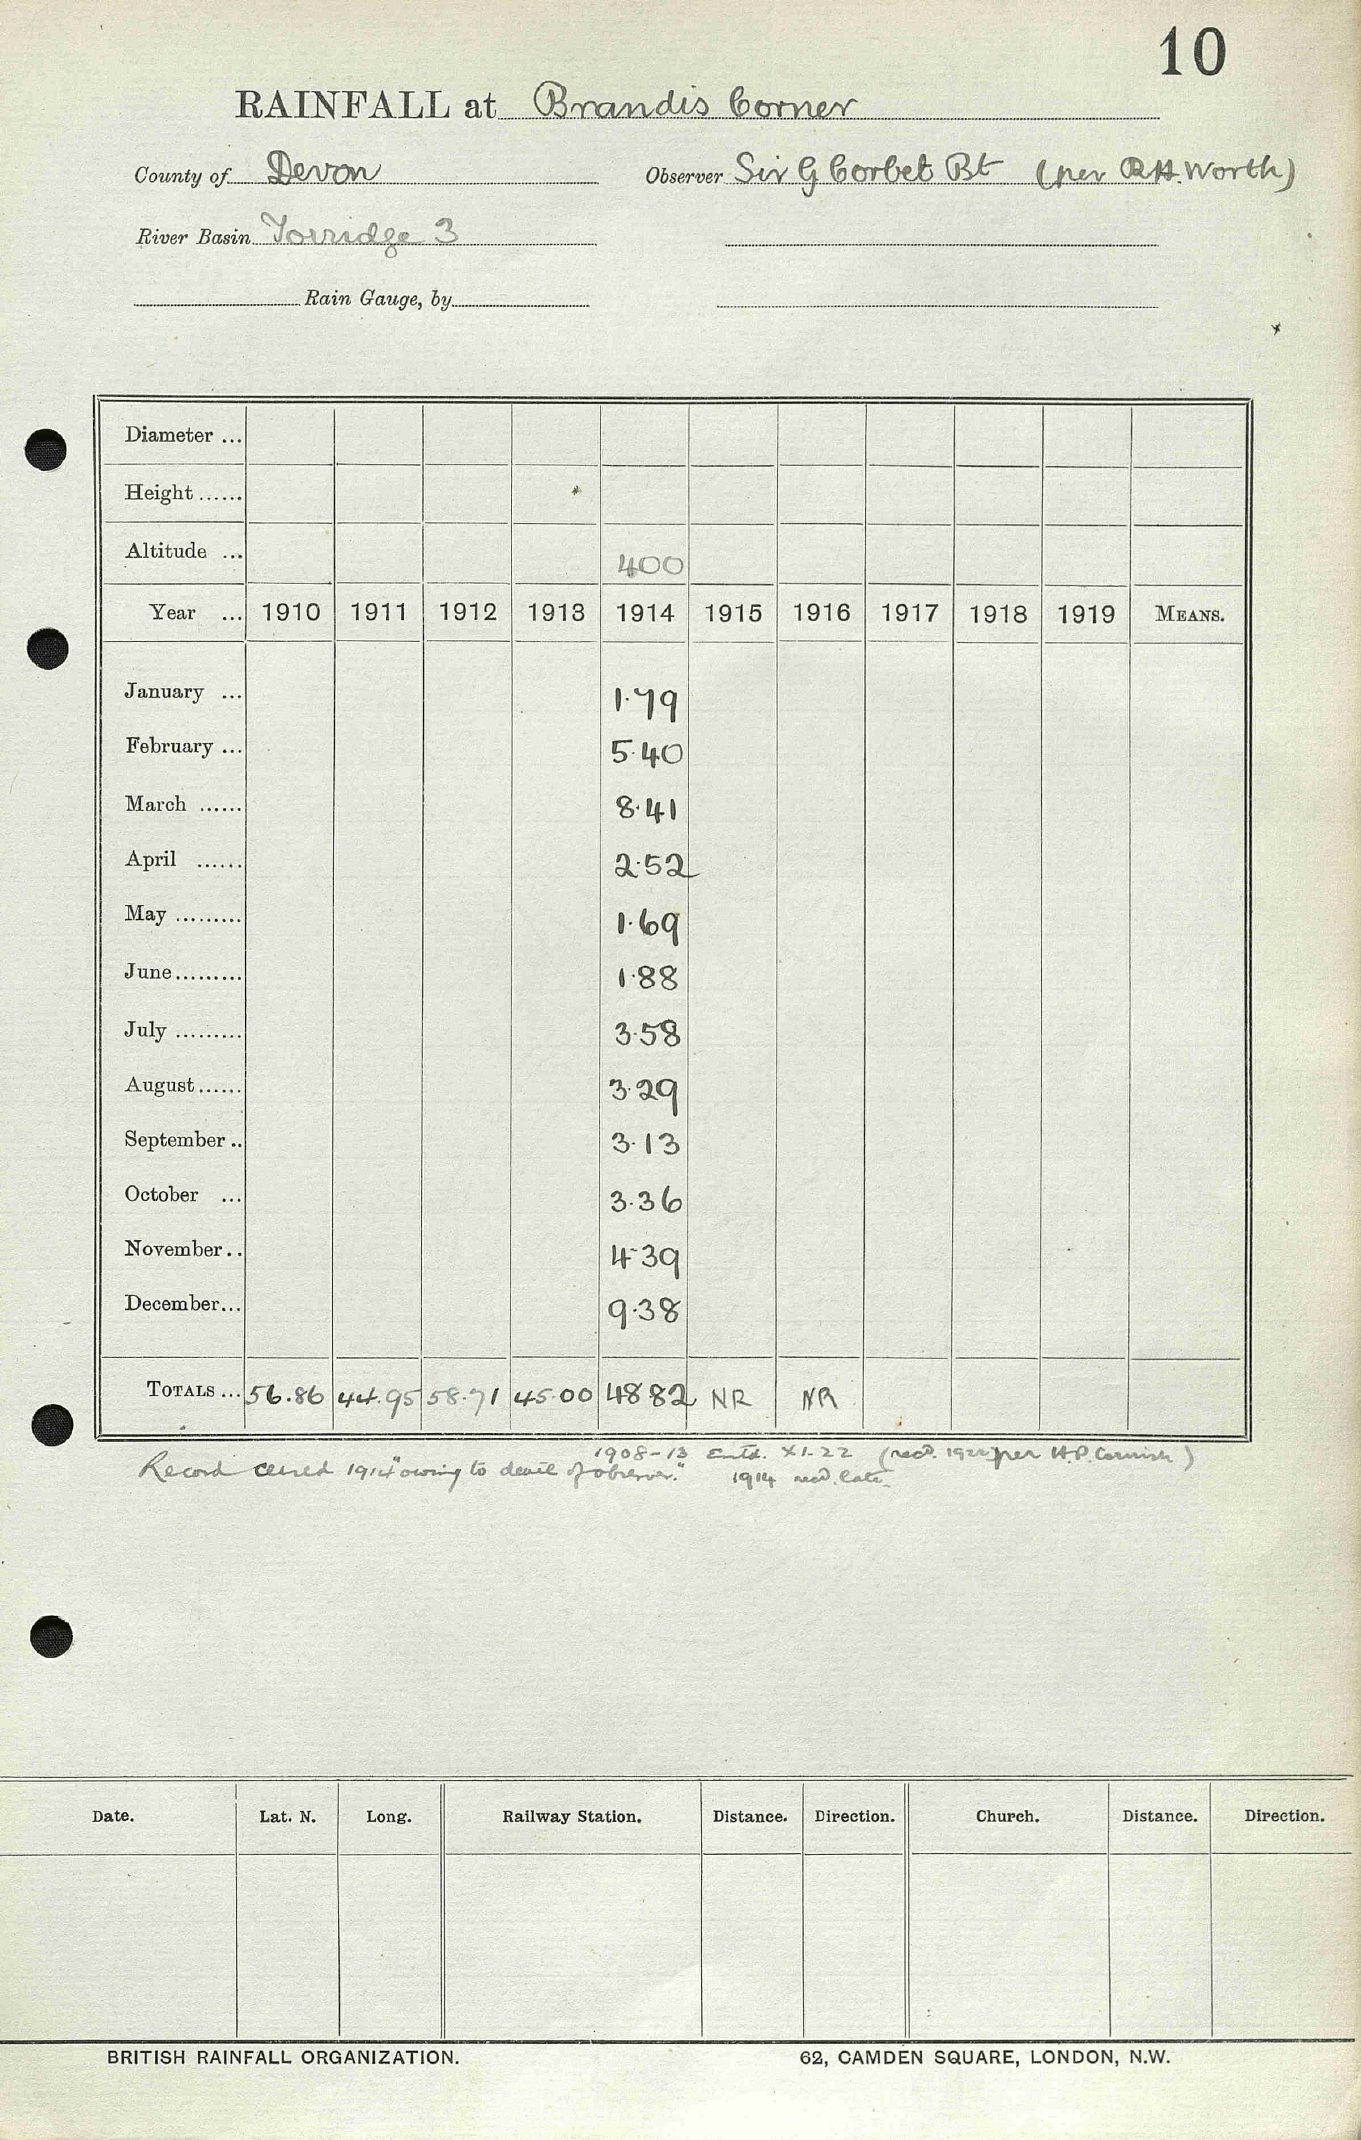 10
RAINFALL at Brandis Corner
County of Devon Observer Sir G Corbet Bt (per R.H. Worth)
River Basin Torridge 3
Rain Gauge, by
Diameter ...
Height ......
Altitude ... 400
Year ... 1910 1911 1912 1913 1914 1915 1916 1917 1918 1919 MEANS.
January ... 1.79
February ... 5.40
March ...... 8.41
April ...... 2.52
May ......... 1.69
June ......... 1.88
July ......... 3.58
August ...... 3.29
September .. 3.13
October ... 3.36
November .. 4.39
December ... 9.38
TOTALS ... 56.86 44.95 58.71 45.00 48 82 NR NR
1908-13 Entd. XI.22 (recd. 1922 per H.P. Cornish)
Record ceased 1914 "owing to death of observer." 1914 recd. late
Date. Lat. N. Long. Railway Station. Distance. Direction. Church. Distance. Direction.
BRITISH RAINFALL ORGANIZATION. 62, CAMDEN SQUARE, LONDON, N.W.